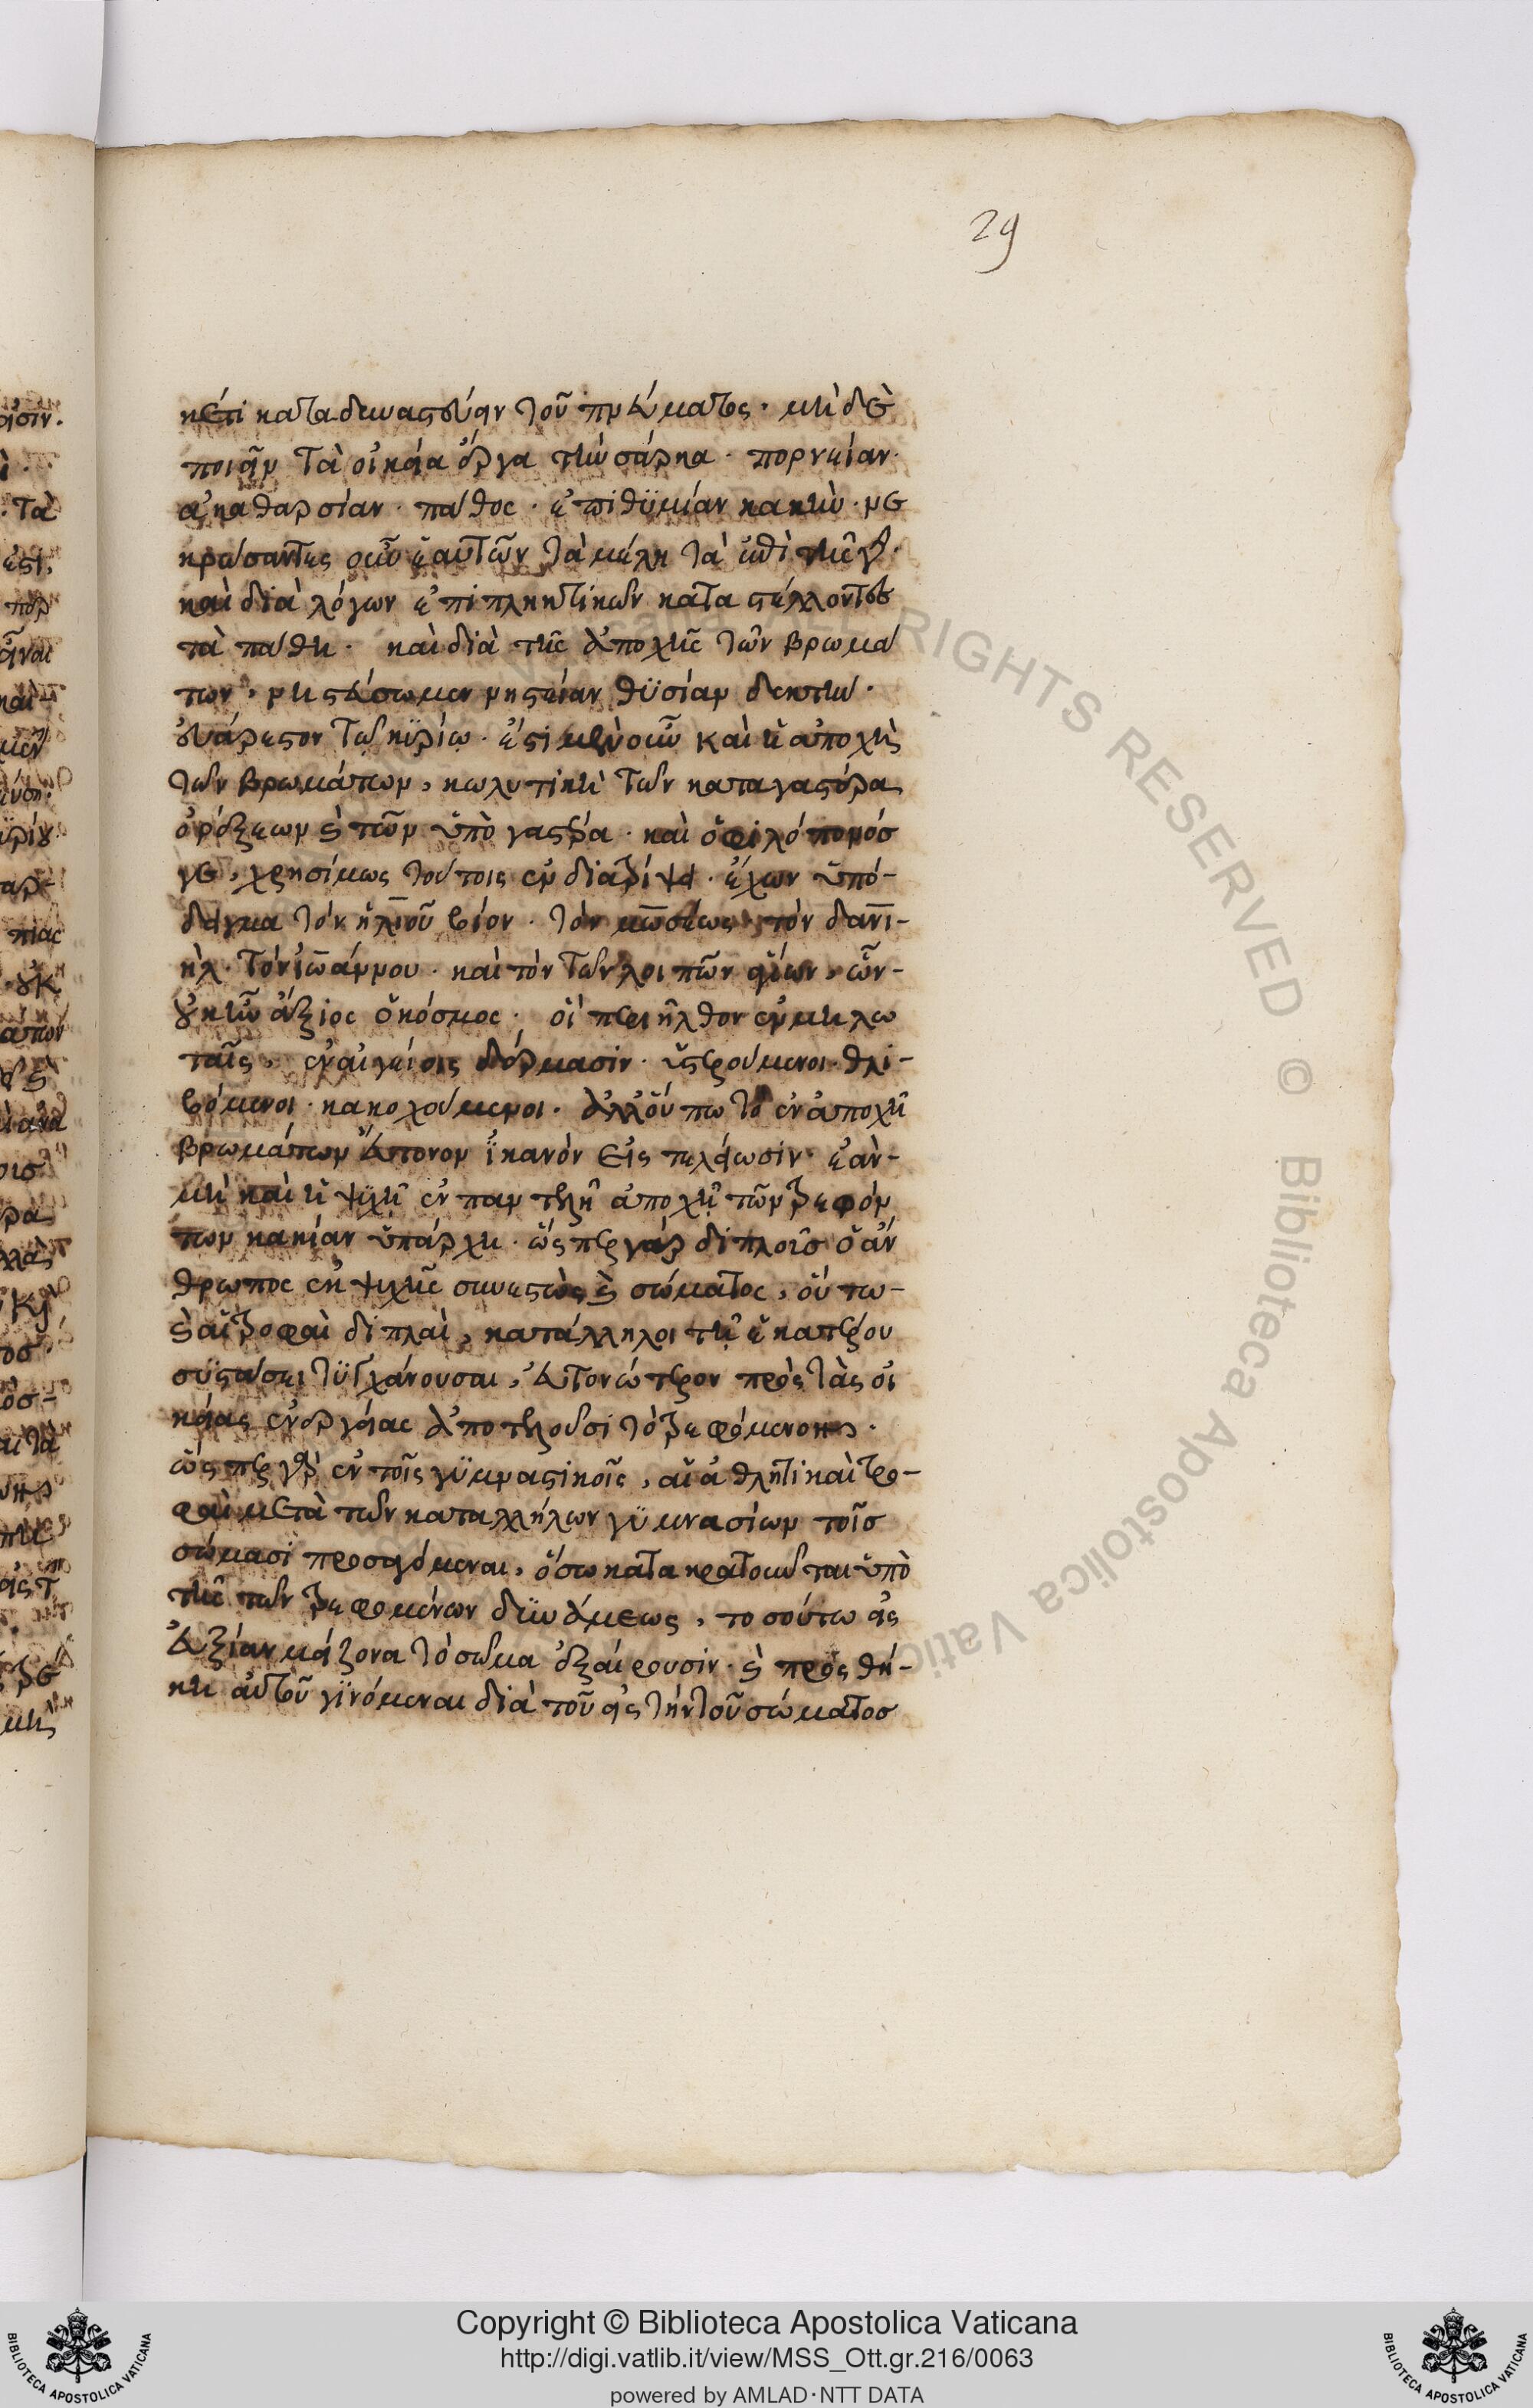 29
κέτι καταδυναστεύειν τοῦ πνεύματος· μὴ δὲ
ποιεῖν τὰ οἰκεῖα ἔργα τὴν σάρκα· πορνείαν·
ἀκαθαρσίαν· πάθος· ἐπιθϋμίαν κακὴν· νε
κρώσαντες οὖν ἑαυτῶν τὰ μέλη τὰ ἐπὶ τῆς γῆς·
καὶ διὰ λόγων ἐπιπληκτικῶν καταστέλλοντες
τὰ πάθη· καὶ διὰ τῆς ἀποχῆς τῶν βρωμά
των, νηστεύσωμεν νηστείαν θϋσίαν δεκτὴν·
εὐάρεστον τῶ κϋρίω· ἔστι μὲν οὖν καὶ ἡ ἀποχὴ
τῶν βρωμάτων, κωλυτικὴ τῶν κατὰ γαστέρα
ὀρέξεων καὶ τῶν ὑπὸ γαστέρα· καὶ ὁ φιλόπονός
γε, χρησίμως τούτοις ἐνδιατρίψει· ἔχων ὑπό-
δειγμα τὸν ἠλιοῦ βίον· τὸν μωσέως· τὸν δανι-
ὴλ· τὸν ἰωάννου· καὶ τὸν τῶν λοιπῶν ἁγίων, ὧν-
οὐκ ἦν ἄξιος ὁ κόσμος· οἳ περιῆλθον ἐν μηλω
ταῖς, ἐν αἰγείοις δέρμασιν· ὑστερούμενοι· θλι-
βόμενοι· κακοχούμενοι· ἀλλ' οὔπω τὸ ἐν ἀποχῆ
βρωμάτων εὔτονον ἱκανὸν εἰς τελείωσιν· ἐὰν-
μὴ καὶ ἡ ψϋχὴ ἐν παντελῆ ἀποχῆ τῶν τρεφόν
των κακίαν ὑπάρχη· ὥσπερ γάρ διπλοῦς ὁ ἄν
θρωπος ἐκ ψυχῆς συνεστὼς καὶ σώματος, οὕτω-
καὶ αἱ τροφαὶ διπλαὶ, κατάλληλοι τῆ ἑκατέρου
σϋστάσει τϋγχάνουσαι, εὐτονώτερον πρὸς τὰς οἰ
κείας ἐνεργείας ἀποτελοῦσι τὸ τρεφόμενον.
ὥσπερ γὰρ ἐν τοῖς γϋμναστικοῖς, αἱ ἀθλητικαὶ τρο-
φαὶ μετὰ τῶν καταλλήλων γϋμνασίων τοῖς
σώμασι προσαγόμεναι, ὅσω κατακρατοῦνται ὑπὸ
τῆς τῶν τρεφομένων δϋνάμεως, τοσούτω εἰς
εὐεξίαν μείζονα τὸ σῶμα ἐξαίρουσιν· καὶ προσθή-
κη αὐτοῦ γϊνόμεναι διὰ τοῦ εἰς τὴν τοῦ σώματος
Copyright © Biblioteca Apostolica Vaticana
http://digi.vatlib.it/view/MSS_Ott.gr.216/0063
powered by AMLAD·NTT DATA